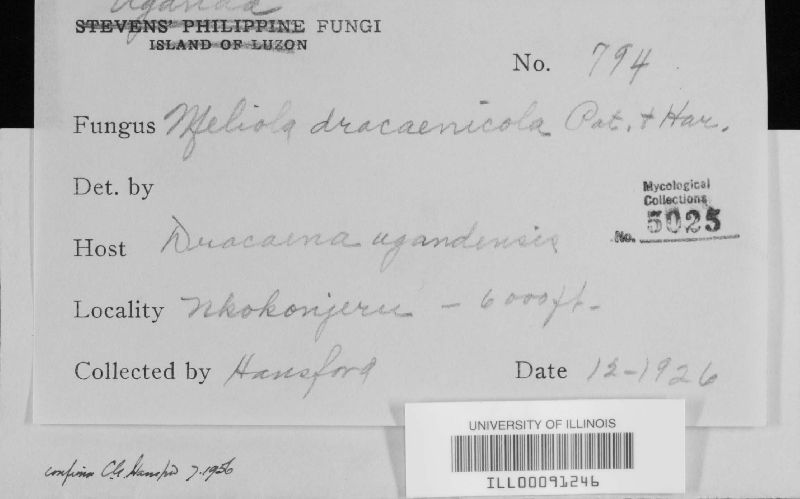 Uganda
STEVENS' PHILIPPINE FUNGI
ISLAND OF LUZON
No. 794
Fungus Meliola dracaenicola Pat. & Har.
Det. by
Mycological
Collections
No. 5025
Host Dracaena ugandensis
Locality Nkokonjeru - 6000ft-
Collected by Hansford
Date 12-1926
UNIVERSITY OF ILLINOIS
ILL00091246
confirm C.G. Hansford 7.1956